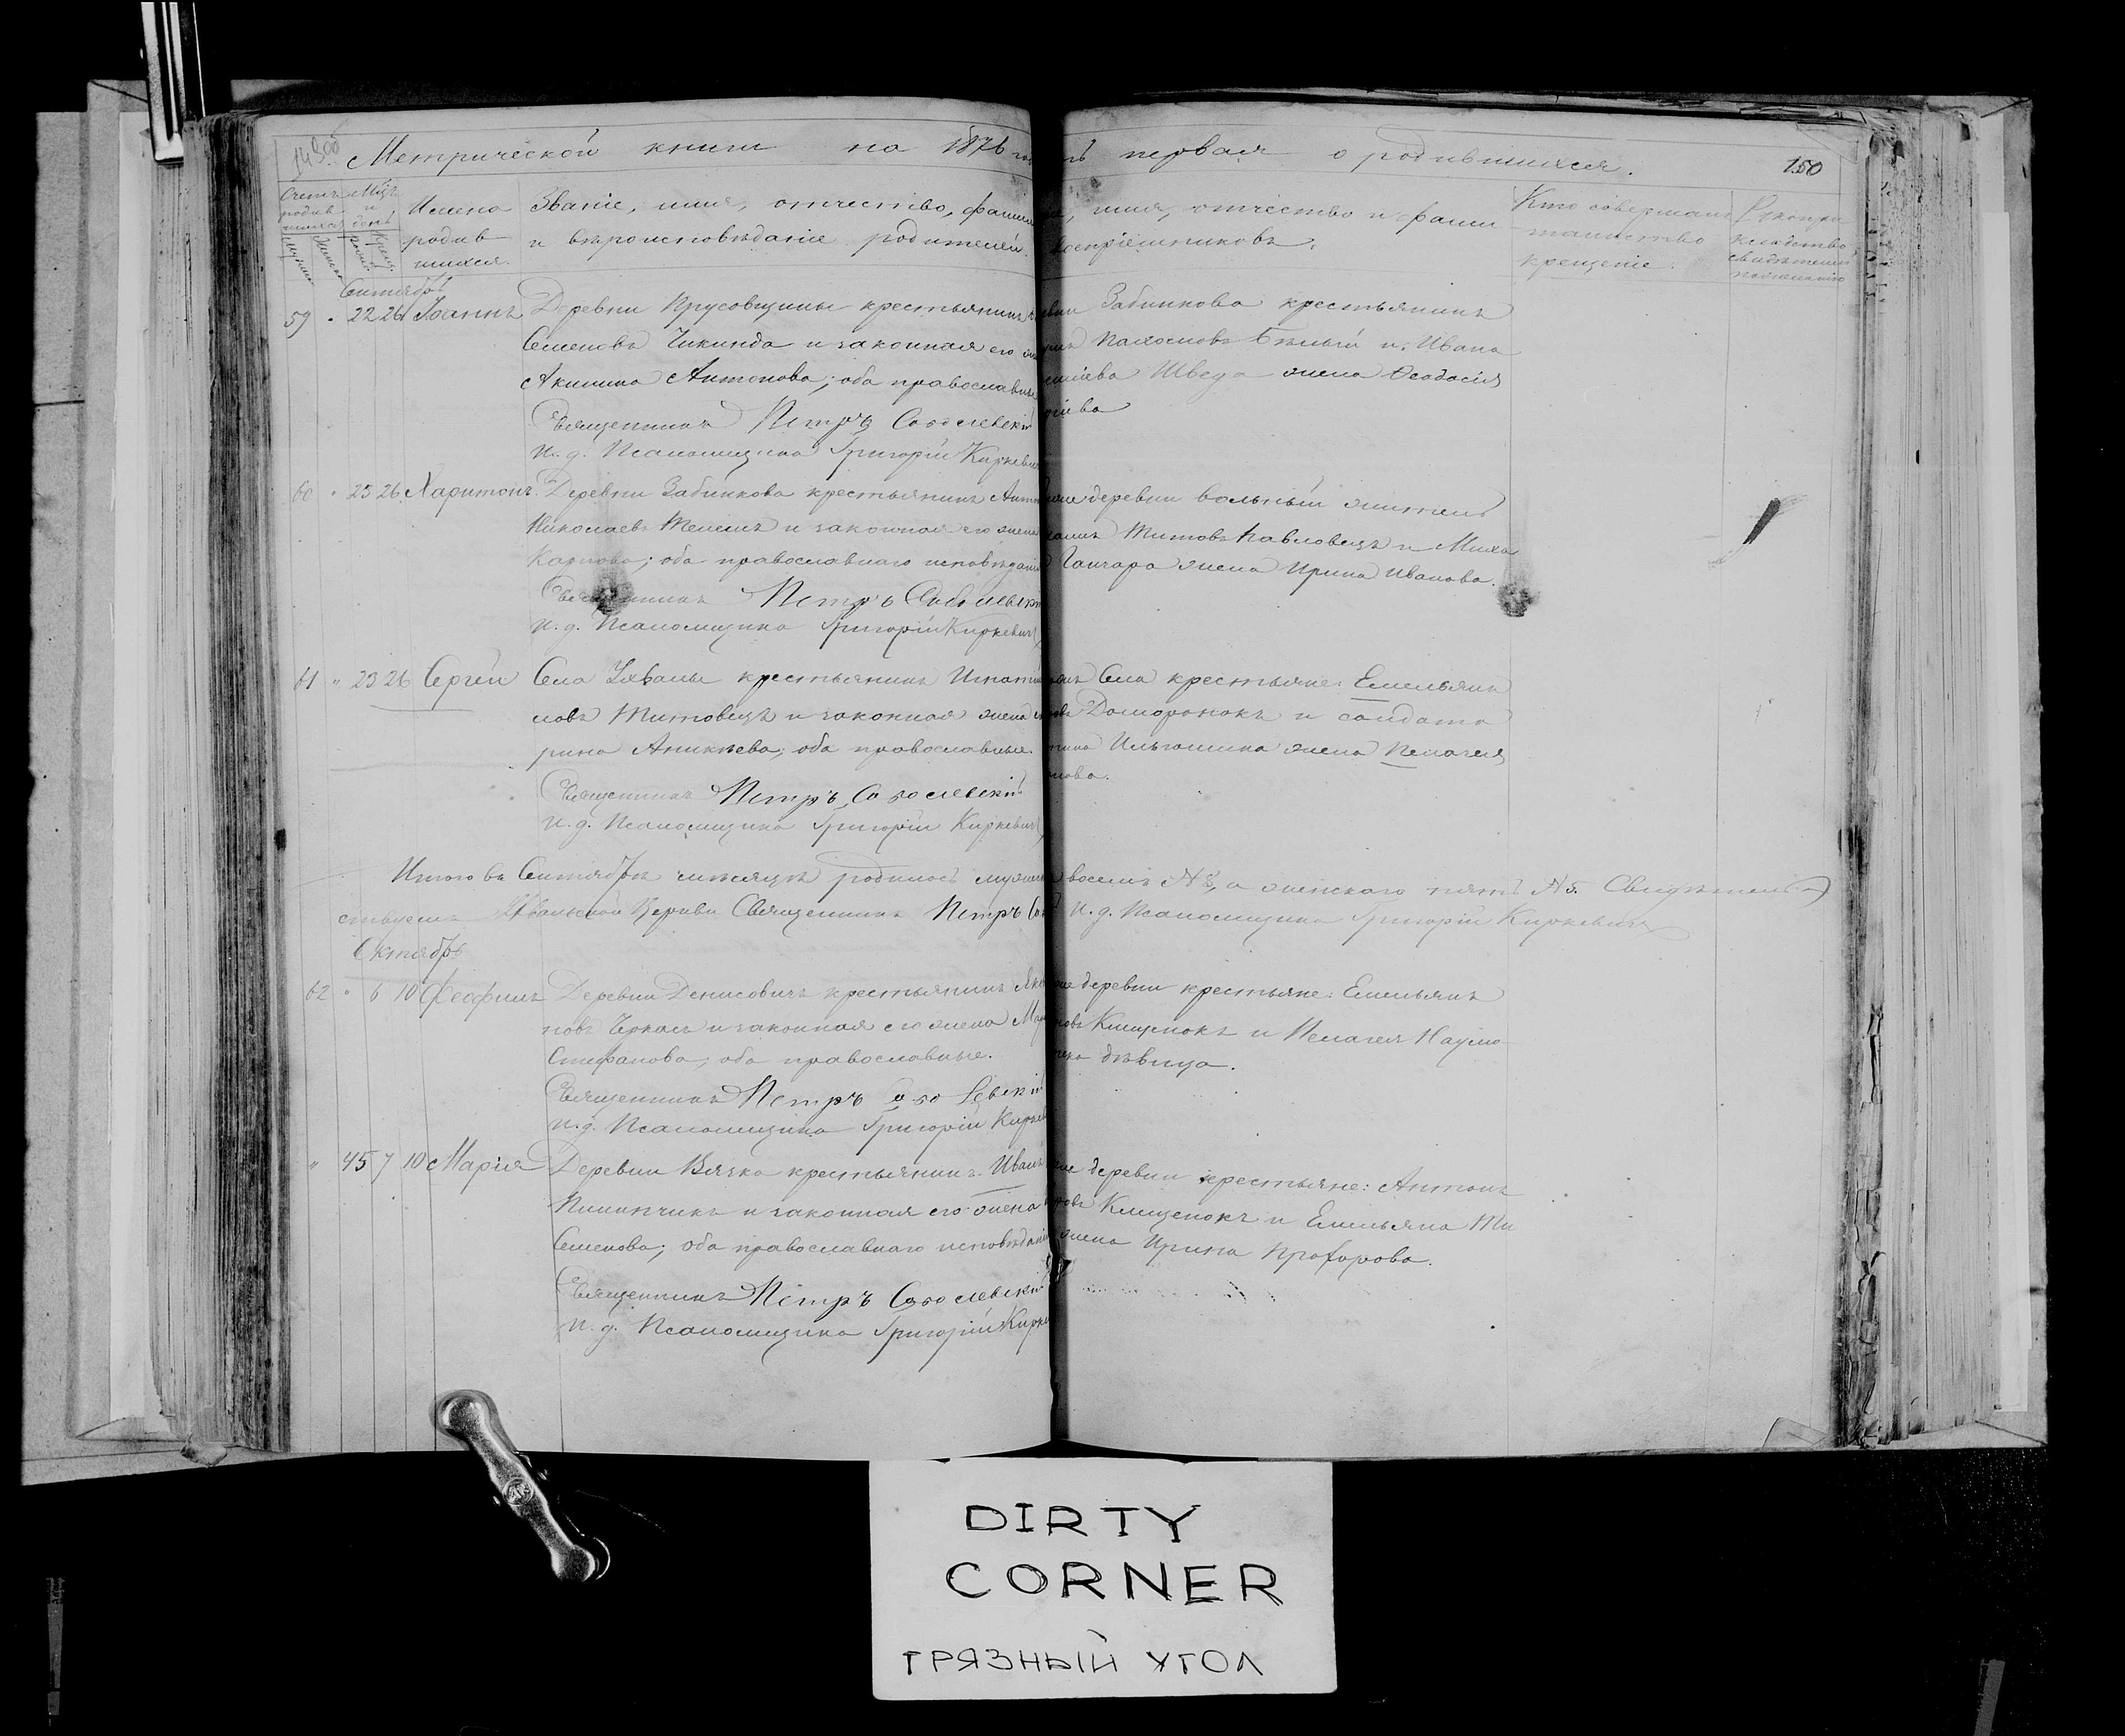 149об
Метрической книги на 1876 го
ть первая о родившихся.
150
Счетъ родив шихся
Мужск.
Женска
Мѣц. и день
рожд.
Крещ.
Имена родив шихся.
Званіе, имя, отчество, фамилі
и вѣроисповѣданіе родителей.
іе, имя, отчество и фами
воспріемниковъ.
Кто совершалъ
таинство
крещеніе.
Рукопри
кладство
свидѣтелей
по желанію
Сентябрь
59 " 22 26 Іоаннъ Деревни Крусовщины крестьянинъ
Семеновъ Чикинда и законная его
Акилина Антонова; оба православные
Священникъ Петръ Соболевскій
и. д. Псаломщика Григорій Киркевич
вни Забинкова крестьянинъ
Пахомовъ Бѣлый и Ивана
Шведа жена Ѳеодосія
ева
60 " 25 26 Харитонъ Деревни Забинкова крестьянинъ Анто
Николаевъ Телешъ и законная его жена
Карпова; оба православнаго исповѣдані
Священникъ Петръ Соболевскі
и. д. Псаломщика Григорій Киркевич
деревни вольный житель
Титовъ Павловецъ и Миха
Ганчара жена Ирина Иванова.
61 " 23 26 Сергѣй Села Ухвалы крестьянинъ Игнатій
новъ Титовецъ и законная жена
рина Аникѣева; оба православные.
Священникъ Петръ Соболевскій
и. д. Псаломщика Григорій Киркевич
Села крестьяне: Емельянъ
овъ Доморонокъ и солдата
Ильюшина жена Пелагея
нова.
Итого въ Сентябрѣ мѣсяцѣ родилось мужеск
восемь №8, а женскаго пять №5. Свидѣтель
ствуемъ Ухвальской Церкви Священникъ Петръ Со
и. д. Псаломщика Григорій Киркевичъ
Октябрь
62 " 6 10 Ѳеофилъ Деревни Денисовичъ крестьянинъ Яко
новъ Черкасъ и законная его жена Мар
Стефанова; оба православные.
Священникъ Петръ Соболевскій
и. д. Псаломщика Григорій Кирке
деревни крестьяне: Емельянъ
новъ Клищенокъ и Пелагея Наумо
дѣвица.
" 45 7 10 Марія Деревни Вязка крестьянинъ Иванъ
Пилипчикъ и законная его жена
Семенова; оба православнаго исповѣдані
Священникъ Петръ Соболевскій
и. д. Псаломщика Григорій Кирке
деревни крестьяне: Антонъ
ровъ Клищенокъ и Емельяна Ти
жена Ирина Прохорова.
DIRTY
CORNER
ГРЯЗНЫЙ УГОЛ